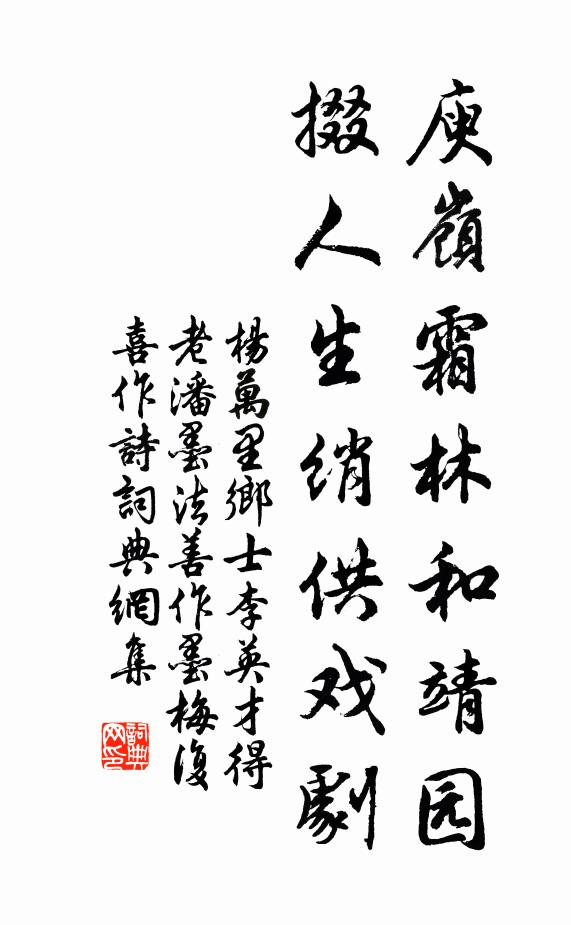 庾嶺霜林和靖园
掇人生绡供戏劇
楊萬里鄉士李英才得
老潘墨法善作墨梅復
喜作詩詞典網集
詞典网印